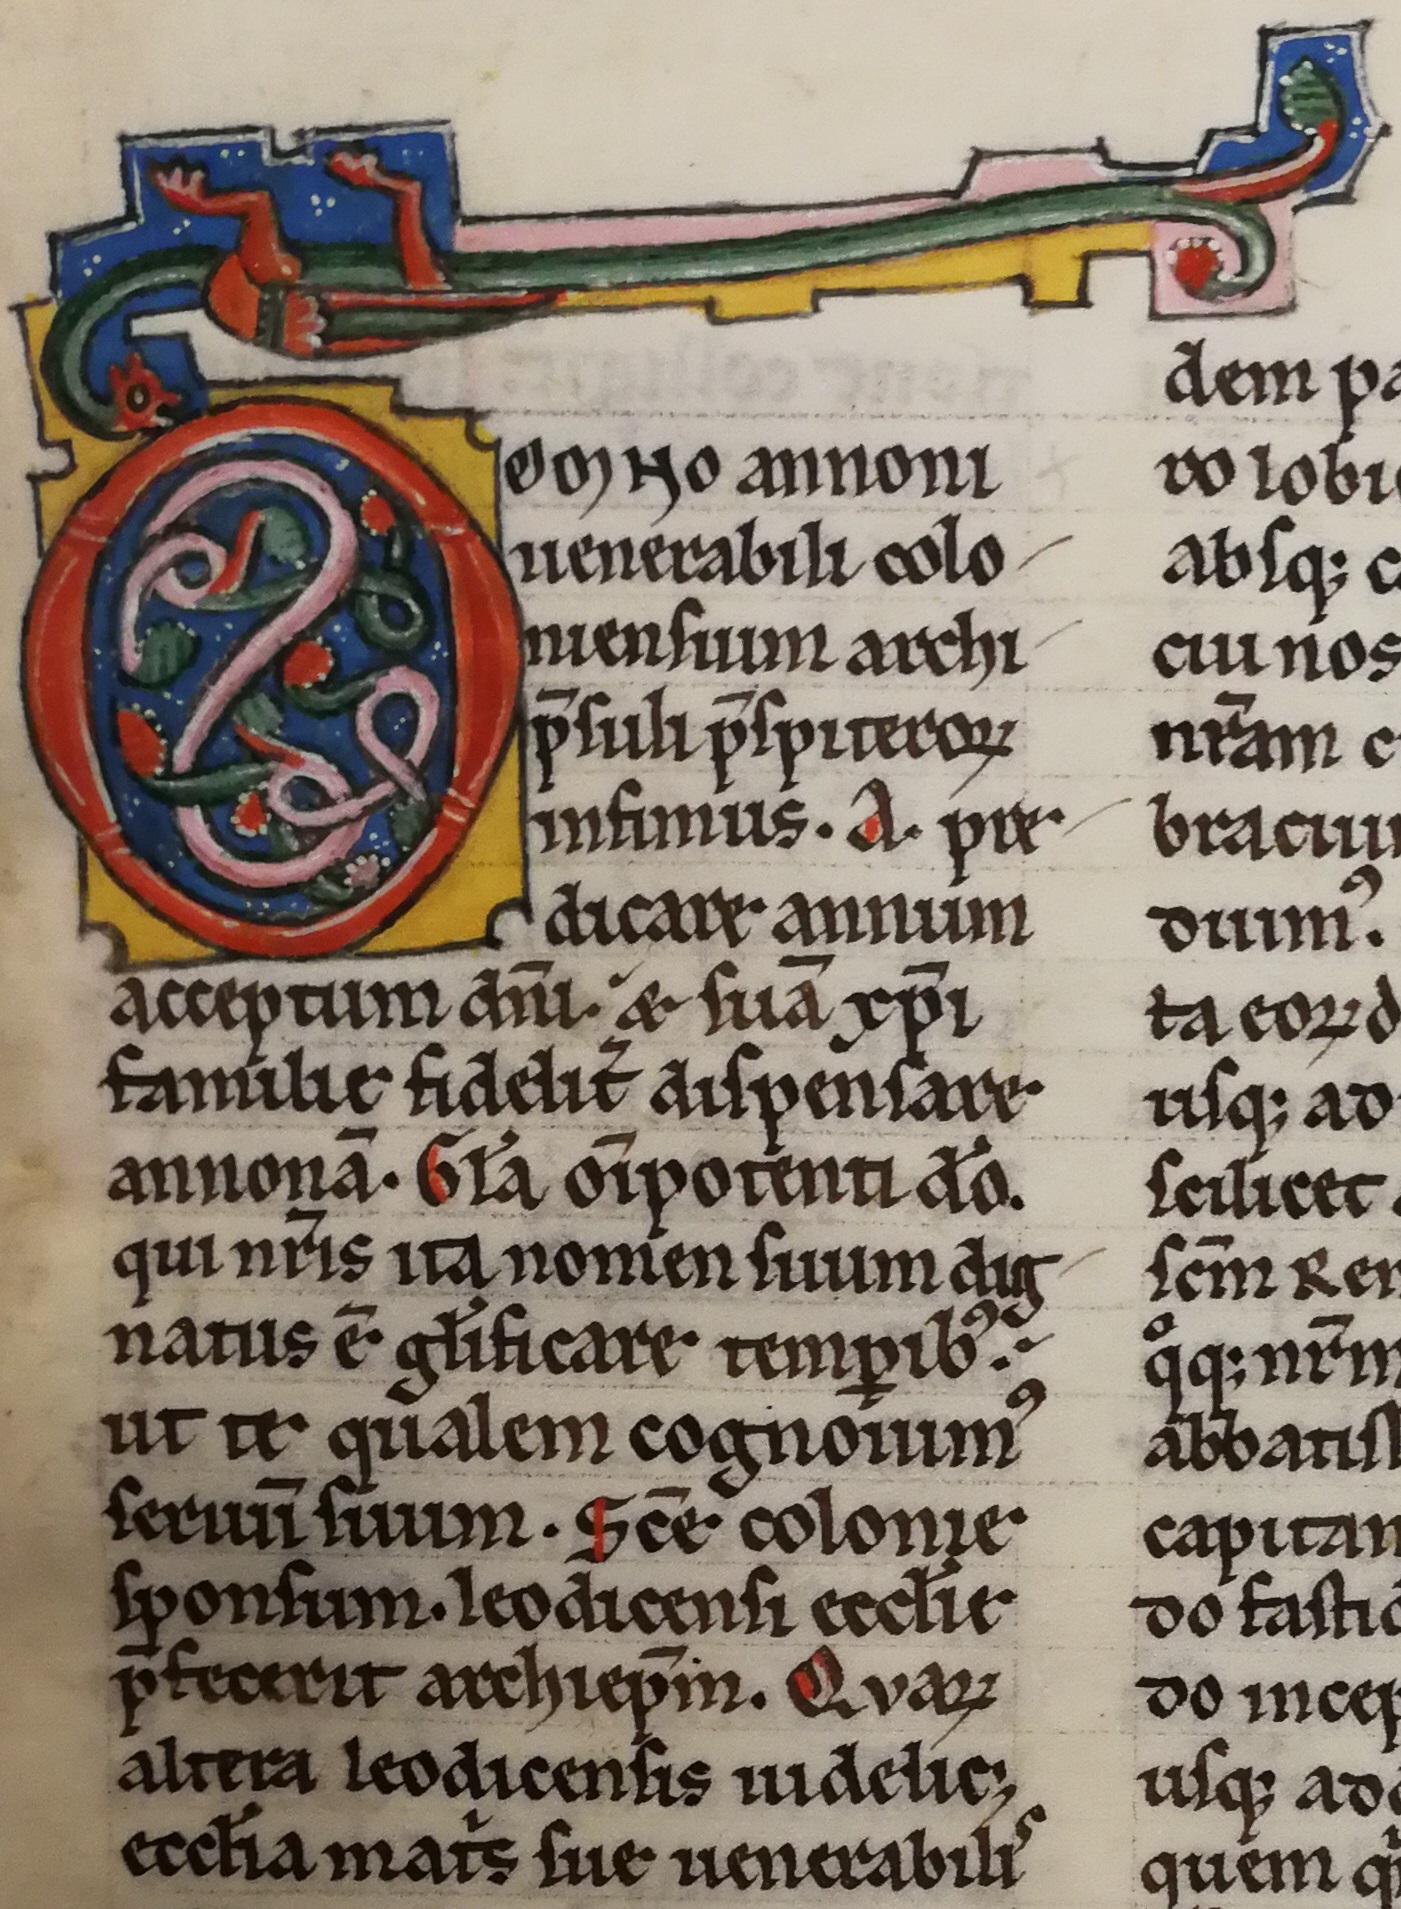 Domno annoni
uenerabili colo
niensium archi
p̄suli p̄spiteroꝝ
infimus. A. pre
dicare annum
acceptum dn̄i. & suā xp̄i
familie fidelit᷑ dispensare
annonā. Gl̄a om̄ipotenti d̄o.
qui nr̄is ita nomen suum dig
natus ē gl̄ificare temꝑibꝰ.
ut te qualem cognouimꝰ
seruū suum. Sc̄e colonie
sponsum. leodicensi eccl̄ie
p̄fecerit archiep̄m. Quaꝝ
altera leodicensis uidelicꝫ
eccl̄ia mat͛s sue uenerabilis
dem pa
do lobi
absqꝫ c
cui nos
nr̄am c
bracuu
duimꝰ.
ta eoꝝ d
usqꝫ ad
scilicet
sc̄m Rem
qͦqꝫ nr̄m
abbatis
capitan
do fasti
do incep
usqꝫ ad
quem q